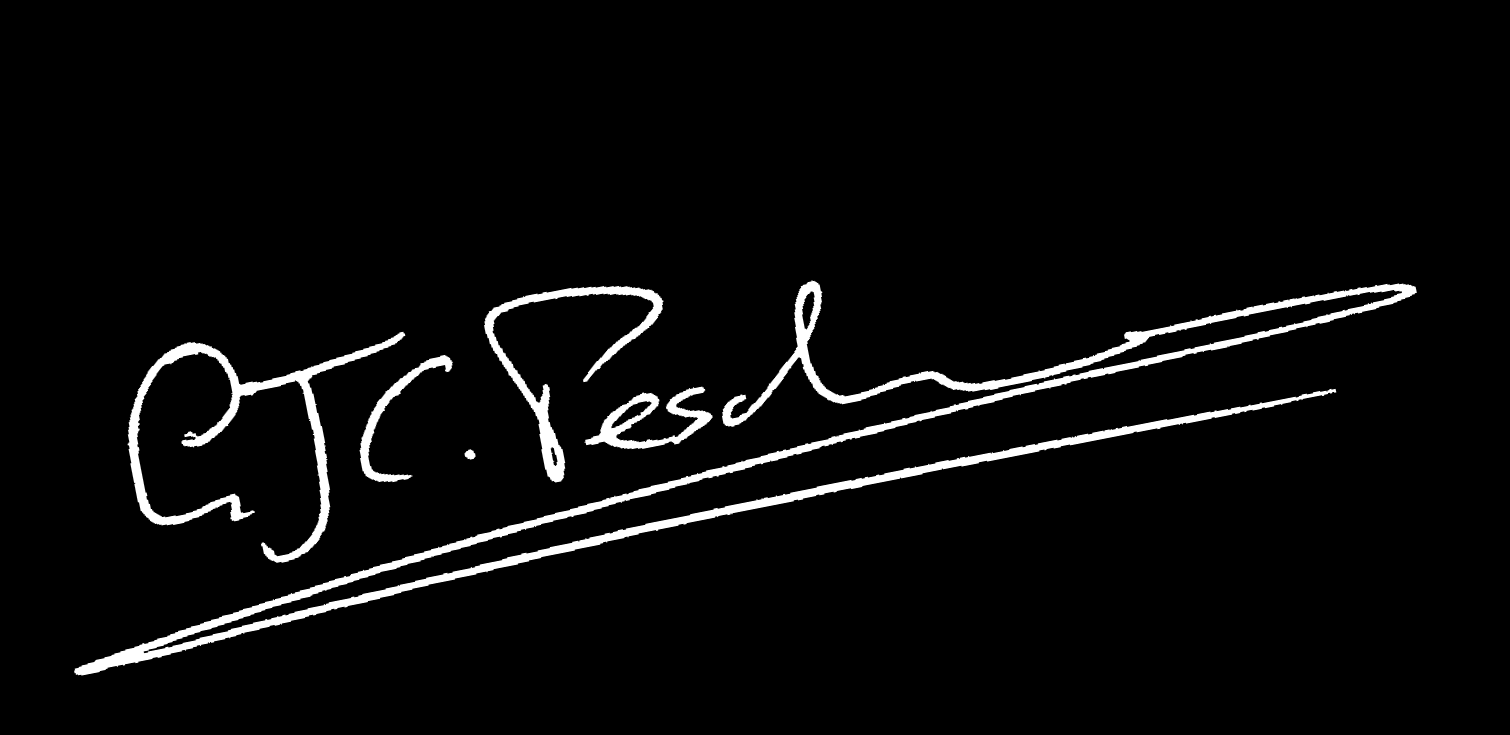 GJC. Pesch